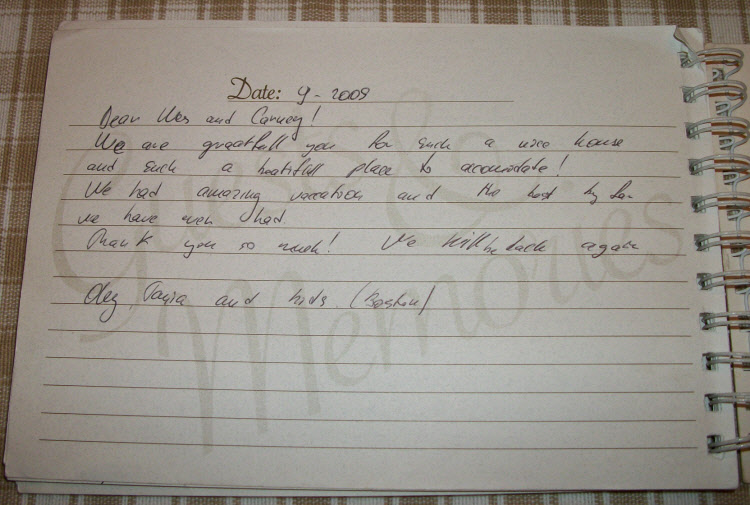 Date: 9-2009
Dear Wes and Carney!
We are greatfull you for such a nice house
and such a beatifull place to acomodate!
We had amazing vacation and the best by far
we have ever had.
Thank you so much! We will be back again
Oleg Tania and kids (Boston)
Guests &
Memories